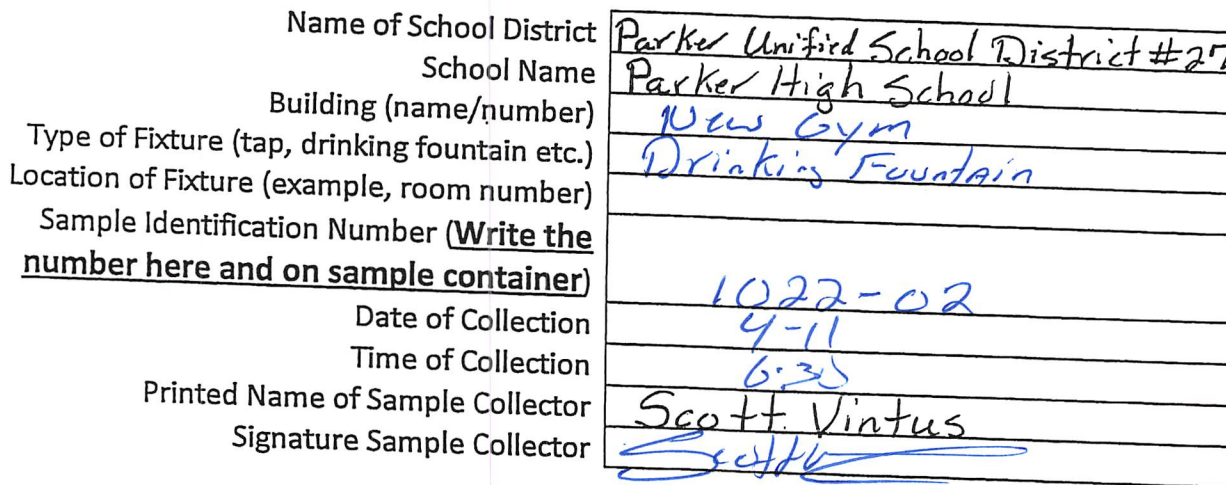 Name of School District Parker Unified School District #27
School Name Parker High School
Building (name/number) New Gym
Type of Fixture (tap, drinking fountain etc.) Drinking Fountain
Location of Fixture (example, room number)
Sample Identification Number (Write the
number here and on sample container) 1022-02
Date of Collection 4-11
Time of Collection 6:30
Printed Name of Sample Collector Scott Vintus
Signature Sample Collector